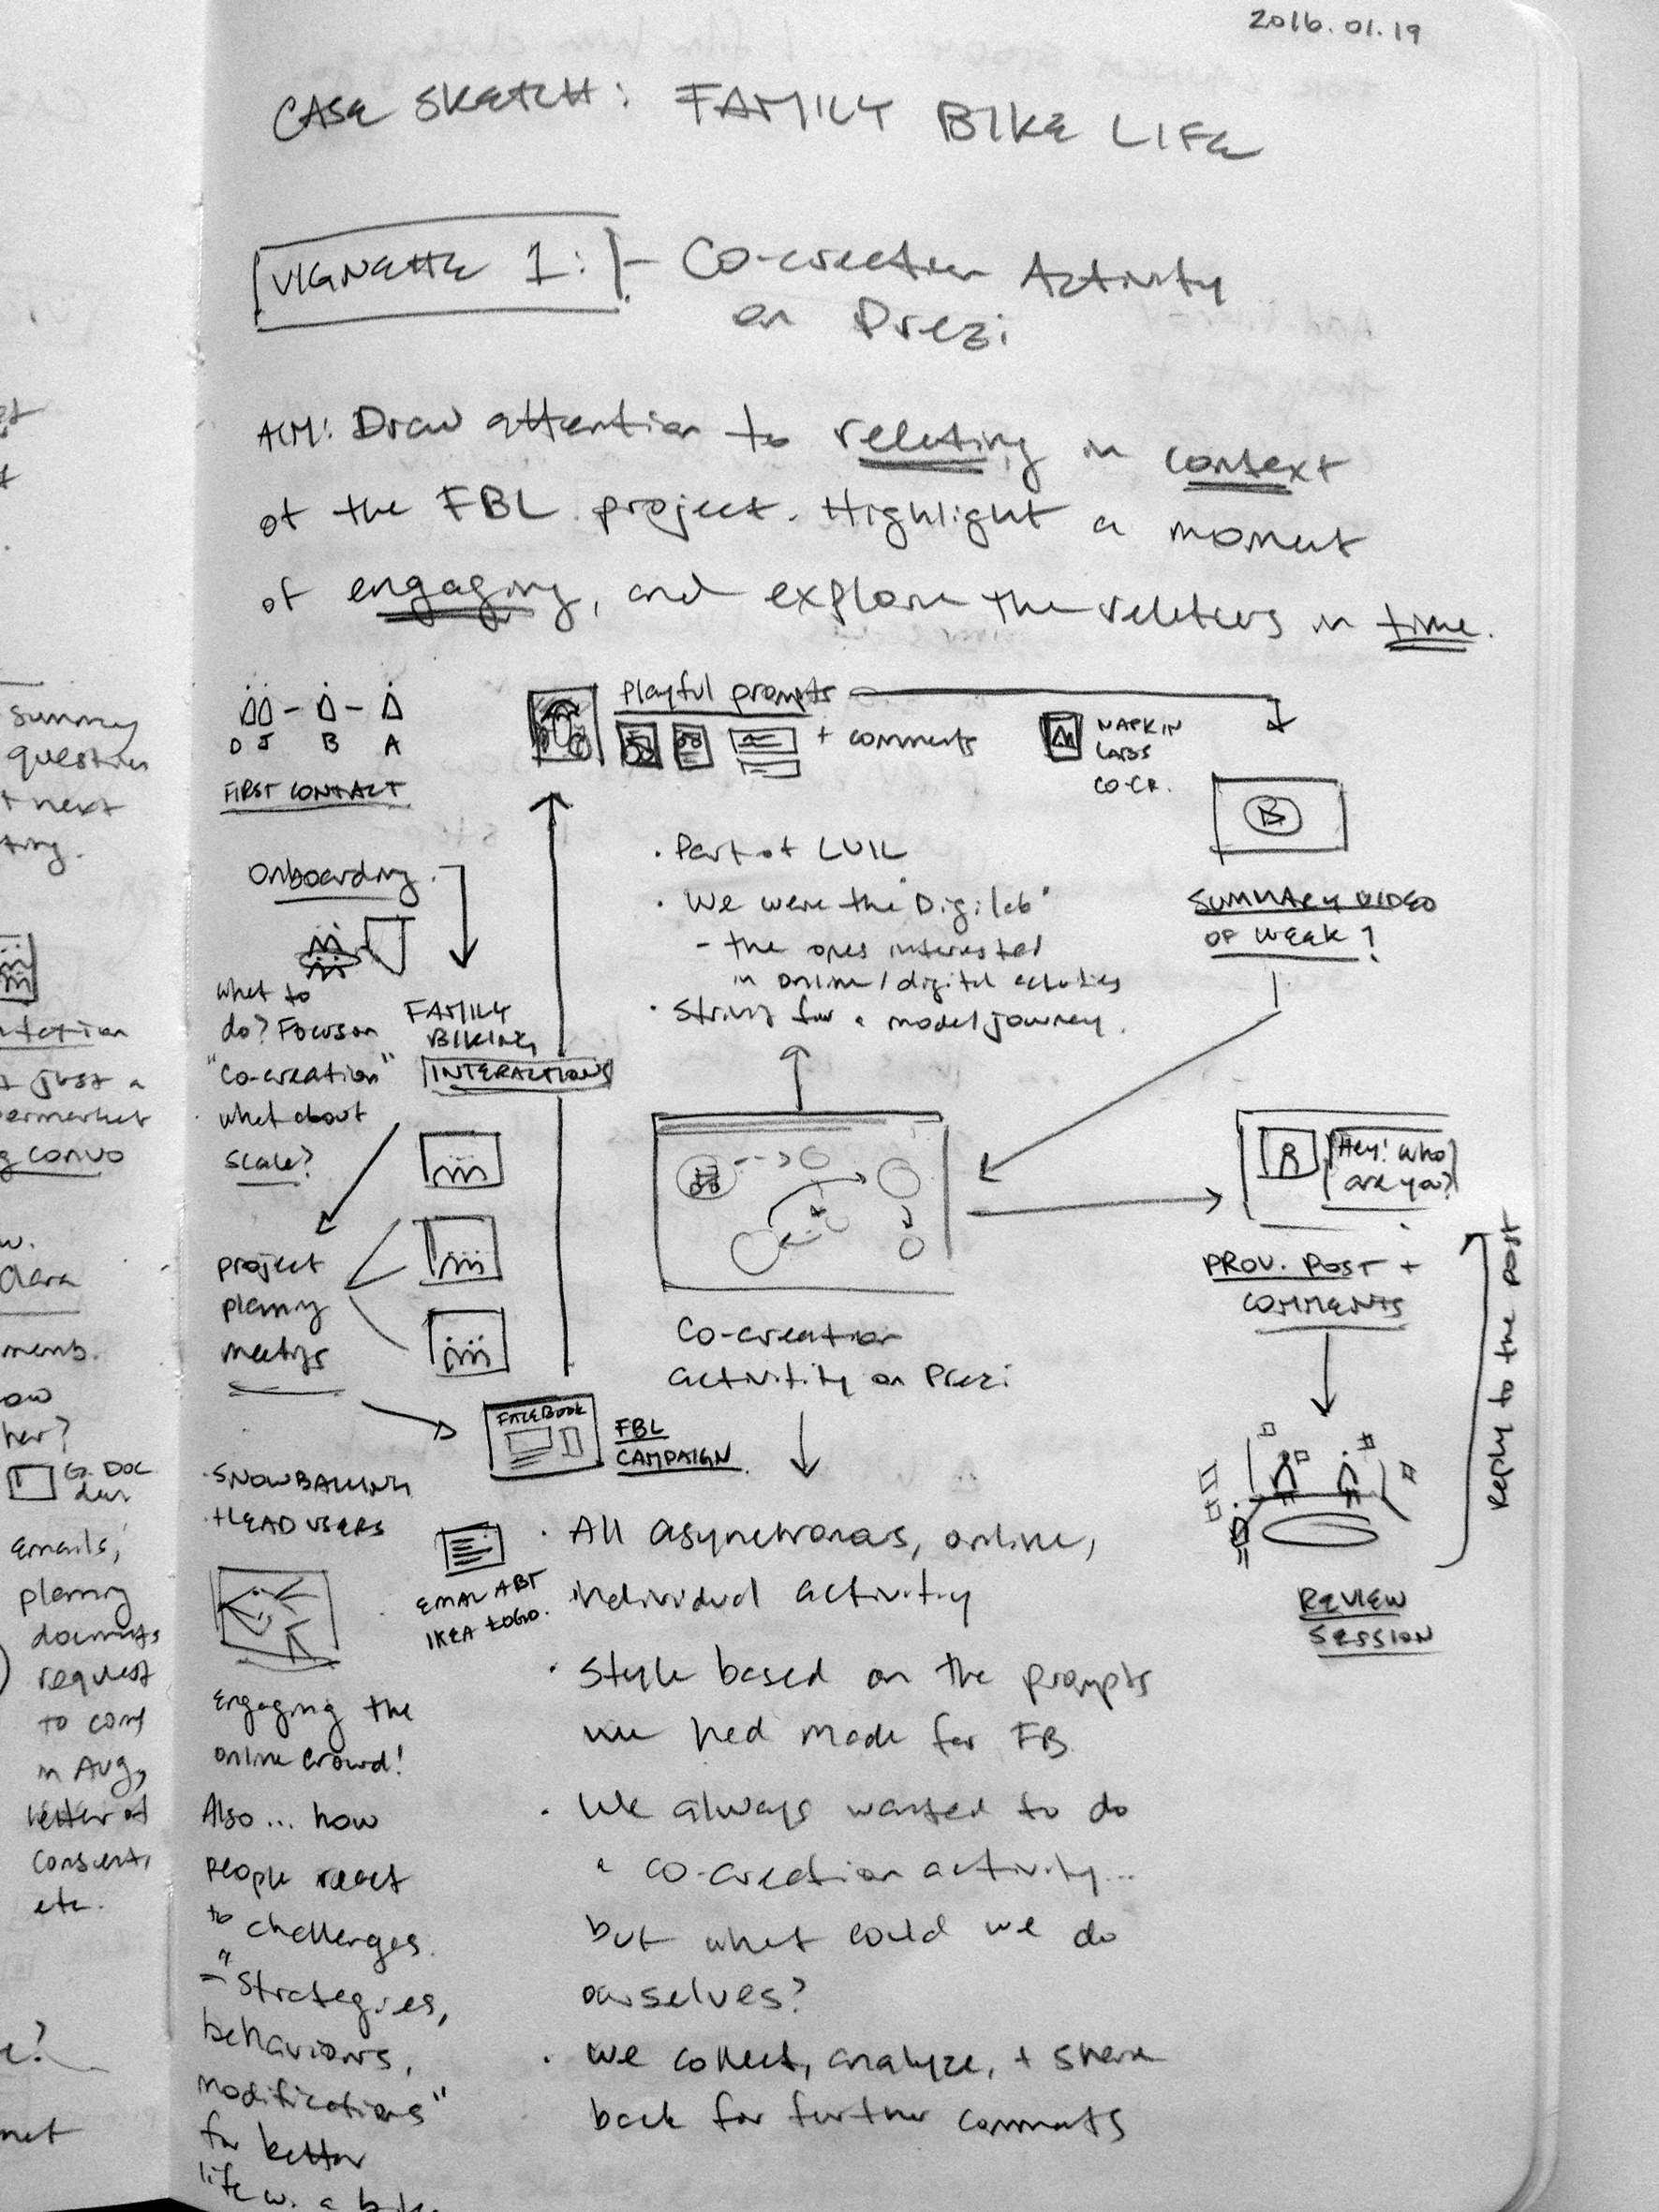 2016.01.19
CASE SKETCH: FAMILY BIKE LIFE
VIGNETTE 1: - Co-creation Activity
on Prezi
AIM: Draw attention to relating in context
of the FBL project. Highlight a moment
of engaging, and explore the relaters in time.
D J B A
FIRST CONTACT
Playful prompts
+ comments
NAPKIN
LABS
CO-CR.
B
SUMMARY VIDEO
OF WEEK 1
Onboarding
what to
do? Focus on
"co-creation"
what about
scale?
FAMILY
BIKING
INTERACTIONS
· Part of LUIL
· We were the "Digilab"
- the ones interested
in online/digital activities
· Striving for a model journey.
project
planning
meetings
Co-creation
activitity on Prezi
Hey! Who
are you?
PROV. POST +
COMMENTS
Reply to the post
REVIEW
SESSION
FACEBOOK
FBL
CAMPAIGN
· SNOWBALLING
+ LEAD USERS
EMAIL ABT
IKEA LOGO.
Engaging the
online crowd!
Also... how
people react
to challenges.
- "Strategies,
behaviors,
modifications"
for better
life w. a bike
· All asynchronous, online,
individual activity
· Style based on the prompts
we had made for FB.
· We always wanted to do
a co-creation activity...
but what could we do
ourselves?
· We collect, analyze, + share
back for further comments
summary
question
next
convo
G. DOC
emails,
planning
documents
request
to conf
in Aug,
letter of
consent,
etc.